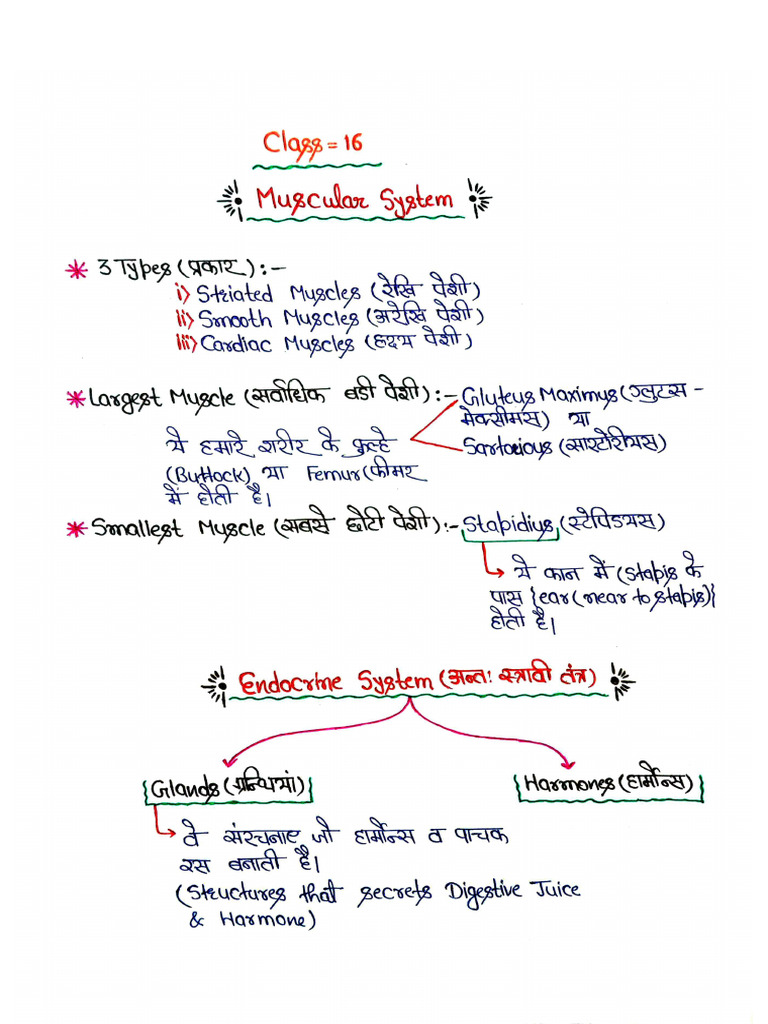 Class = 16
Muscular System
* 3 Types (प्रकार) :-
i) Striated Muscles (रेखि पेशी)
ii) Smooth Muscles (अरेखि पेशी)
iii) Cardiac Muscles (ह्रदय पेशी)
* Largest Muscle (सर्वाधिक बडी पेशी) :- Gluteus Maximus (ग्लुटस -
मेक्सीमस) या
ये हमारे शरीर के कुल्हे
Sartorious (सारटोरीयस)
(Buttock) या Femur (फीमर
में होती है।
* Smallest Muscle (सबसे छोटी पेशी) :- Stapidius (स्टेपिडियस)
ये कान में (Stapis के
पास {ear (near to stapis)}
होती है।
Endocrine System (अन्तः स्त्रावी तंत्र)
{Glands (ग्रन्थियां)}
{Harmones (हार्मोन्स)}
वे संरचनाए जो हार्मोन्स व पाचक
रस बनाती है।
(Structures that secrets Digestive Juice
& Harmone)